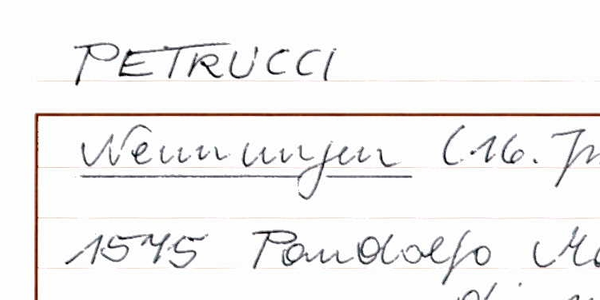 PETRUCCI
Nennungen (16. Jh
1545 Pandolfo